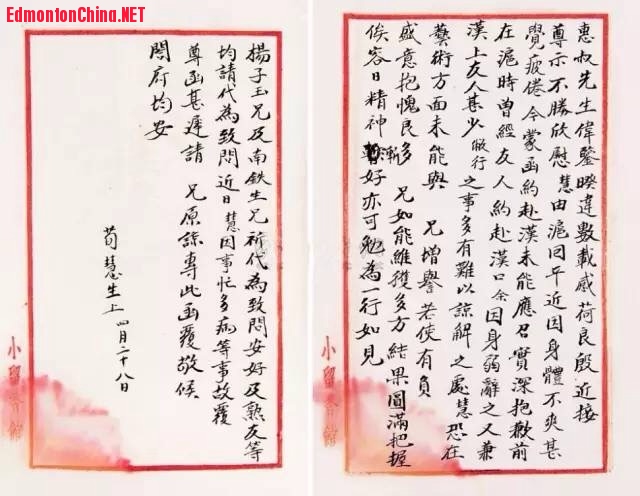 EdmontonChina.NET
惠叔先生偉鑒暌違數載感荷良殷近接
尊示不勝欣慰慧由滬回平近因身體不爽甚
覺疲倦今蒙函約赴漢未能應召實深抱歉前
在滬時曾經友人約赴漢口余因身弱辭之又兼
漢上友人甚少做行之事多有難以諒解之處慧恐在
藝術方面未能與兄增譽若使有負
盛意抱愧良多兄如能維穫多方結果圓滿把握
俟容日精神漸好亦可勉為一行如見
小留香館
楊子玉兄及南鉄生兄祈代為致問安好及熟友等
均請代為致問近日慧因事忙多病等事故覆
尊函甚遲請兄原諒專此函覆敬候
閤府均安
荀慧生上四月二十八日
小留香館